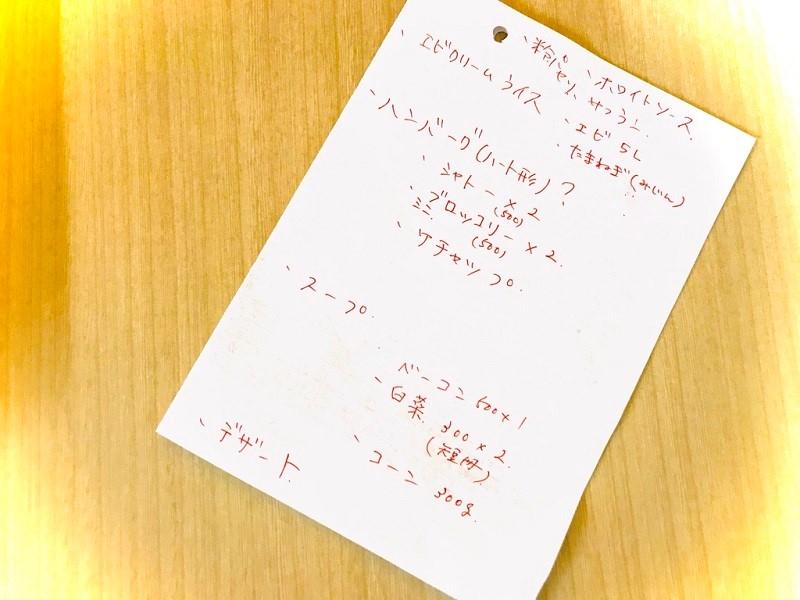 、エビクリームライス
、ホワイトソース
、粉パセリ
、エビ 5L
、たまねぎ(みじん)
、ハンバーグ(ハート形)?
、シャトー×2
(500)
、ミニブロッコリー×2.
(500)
、ケチャップ.
、スープ.
ベーコン 500×1
、白菜 300×2.
(短冊)
、コーン 300g.
、デザート.